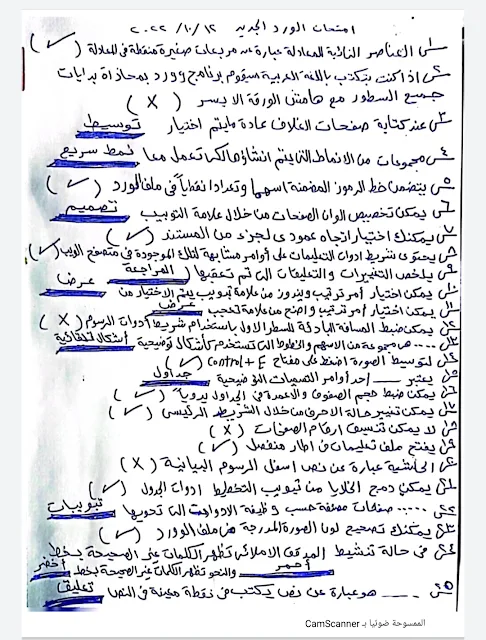 امتحان الورد الجديد ١٢ /١٠/ ٢٠٢٢
س١ العناصر النائبة للمعادلة عبارة عن مربعات صغيرة منقطة في المعادلة (✓)
س٢ إذا كنت تكتب باللغة العربية سيقوم برنامج وورد بمحاذاة بدايات
جميع السطور مع هامش الورقة الايسر (X)
س٣ عند كتابة صفحات الغلاف عادة مايتم اختيار توسيط
س٤ مجموعات من الانماط التي يتم انشاؤها لكي تعمل معا نمط سريع
س٥ يتضمن خط الرموز المضمنة اسمها وتعدادا نقطيا في ملف الورد (✓)
س٦ يمكن تخصيص الوان الصفحات من خلال علامة التبويب تصميم
س٧ يمكنك اختيار اتجاه عمودي لجزء من المستند (✓)
س٨ يحتوي شريط ادوات التعليمات على أوامر مشابهة لتلك الموجودة في متصفح الويب (✓)
س٩ يلخص التغييرات والتعليقات التي تم تعقبها (المراجعة)
س١٠ يمكن اختيار أمر ترتيب ويندوز من علامة تبويب يتم الاختيار من عرض
س١١ يمكن اختيار أمر ترتيب واضح من علامة تبويب عرض
س١٢ يمكن ضبط المسافة البادئة للسطر الاول باستخدام شريط أدوات الرسوم (X)
س١٣ .... هنا مجموعة من الاسهم والخطوط التي تستخدم كأشكال توضيحية أشكال تلقائية
س١٤ لتوسيط الصورة اضغط على مفتاح control + E (✓)
س١٥ يعتبر ___ احد أوامر التسميات التوضيحية جداول
س١٦ يمكن ضبط حجم الصفوف والاعمدة في الجداول يدويا (✓)
س١٧ يمكن تغيير حالة الاحرف من خلال الشريط الرئيسي (✓)
س١٨ لا يمكن تنسيق ارقام الصفحات (X)
س١٩ يفتح ملف تعليمات في اطار منفصل (✓)
س٢٠ الحاشية عبارة عن نص اسفل الرسوم البيانية (X)
س٢١ يمكن دمج الخلايا من تبويب التخطيط ادوات الجدول (✓)
س٢٢ ..... صفحات مصنفة حسب وظيفة الادوات التي تحويها تبويبات
س٢٣ يمكنك تصحيح لون الصورة المدرجة في ملف الوورد (✓)
س٢٤ في حالة تنشيط المدقق الاملائي تظهر الكلمات غير الصحيحة بخط
أحمر والنحو تظهر الكلمات غير الصحيحة بخط أخضر
س٢٥ ___ هو عبارة عن نص يكتب في نقطة معينة في النص تعليق
الممسوحة ضوئيا بـ CamScanner